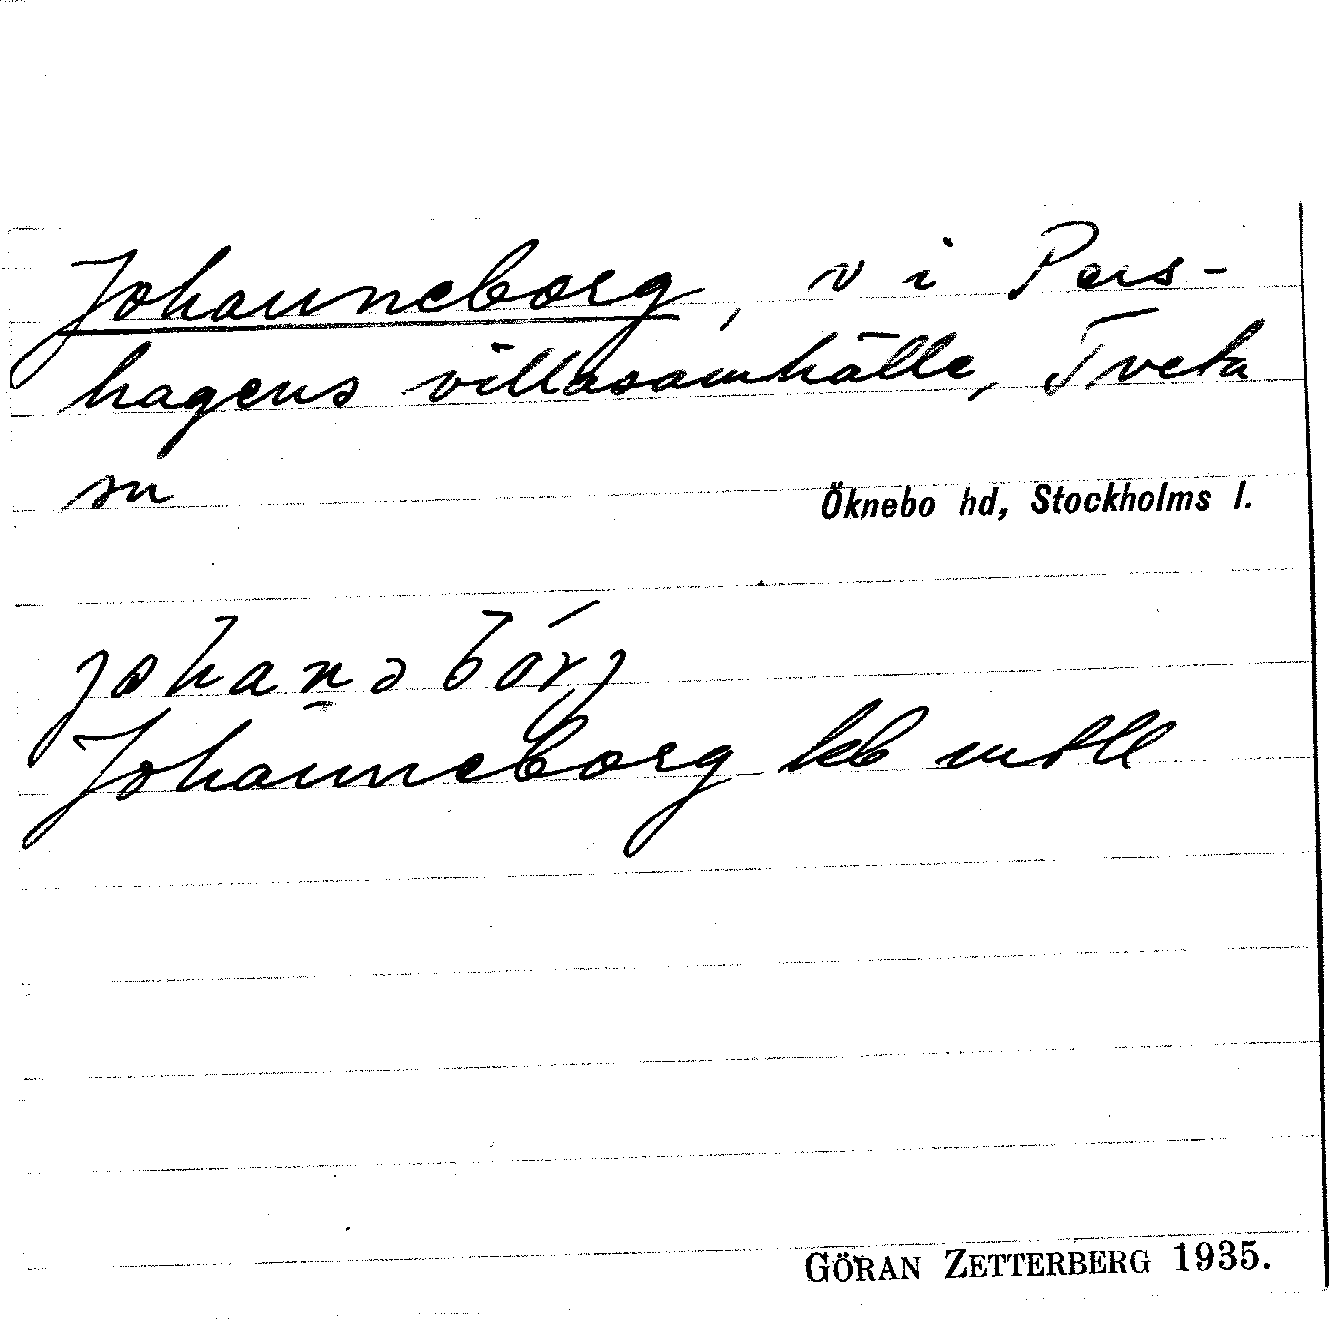 Johanneborg, v i Pers-
hagens villasamhälle, Tveta
sn
Öknebo hd, Stockholms l.
johanəbórj
Johanneborg kb mtll
GÖRAN ZETTERBERG 1935.